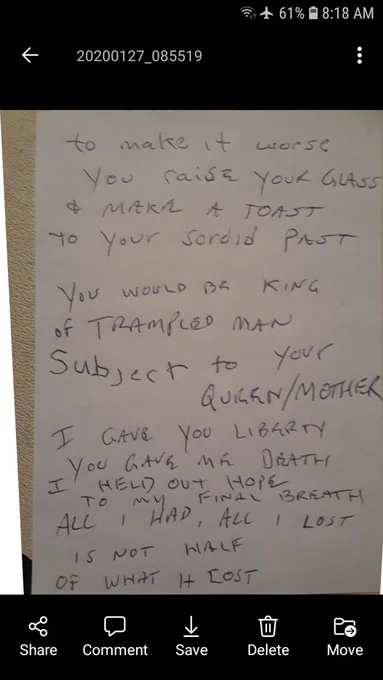 61% 8:18 AM
20200127_085519
to make it worse
You raise Your GLASS
& MAKE A TOAST
to Your Sordid PAST
YOU WOULD BE KING
OF TRAMPLED MAN
Subject to your
QUEEN/MOTHER
I GAVE YOU LIBERTY
YOU GAVE ME DEATH
I HELD OUT HOPE
TO MY FINAL BREATH
ALL I HAD, ALL I LOST
IS NOT HALF
OF WHAT It COST
Share Comment Save Delete Move